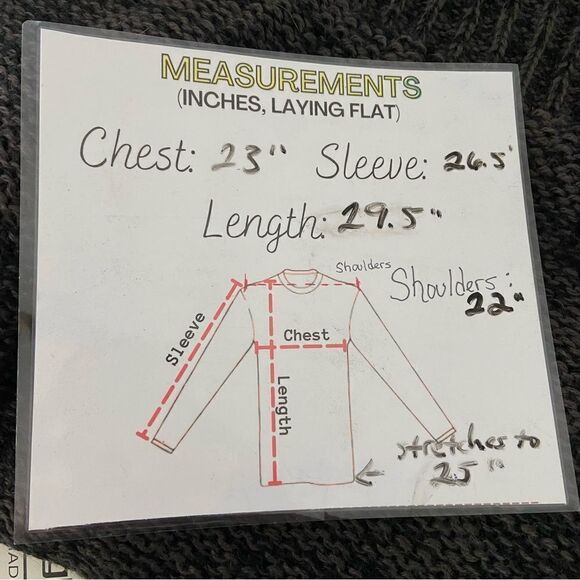 MEASUREMENTS
(INCHES, LAYING FLAT)
Chest: 23" Sleeve: 26.5'
Length: 29.5"
Shoulders
Shoulders:
22"
Sleeve
Chest
Length
stretches to
25"
AD